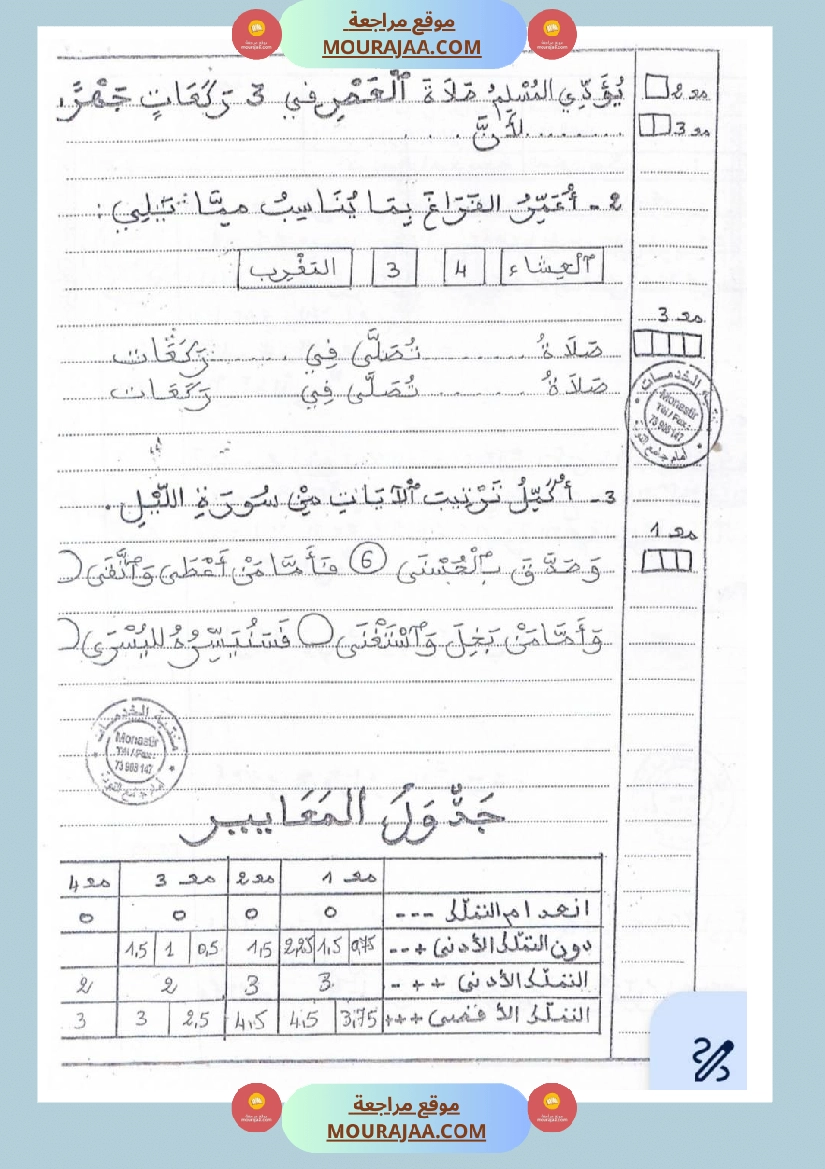 موقع مراجعة
MOURAJAA.COM
يُؤَدِّي المُسْلِمُ صَلَاةَ ٱلْعَصْرِ في 3 رَكَعَاتٍ جَهْرً
مع 2
لِأَنَّ ........
مع 3
2 - أُعَمِّرُ الفَرَاغَ بِمَا يُنَاسِبُ مِمَّا يَلِي :
ٱلعِشَاء 4 3 المَغْرِب
مع 3
صَلَاةُ ........ تُصَلَّى فِي ........ رَكَعَات
صَلَاةُ ........ تُصَلَّى فِي ........ رَكَعَات
منتبة الخدمات
Monastir
Tél / Fax :
73 908 147
3 - أُكَمِّلُ تَرْتِيبَ ٱلآيَاتِ مِنْ سُورَةِ اللَّيْلِ .
مع 1
وَصَدَّقَ بِٱلْحُسْنَى 6 فَأَمَّا مَنْ أَعْطَى وَٱتَّقَى
وَأَمَّا مَنْ بَخِلَ وَٱسْتَغْنَى فَسَنُيَسِّرُهُ لليُسْرَى
Monastir
Tél / Fax :
73 908 147
جَدْوَلُ المَعَايير
مع 1 مع 2 مع 3 مع 4
انعدام التملّك --- 0 0 0 0
دون التملّك الأدنى +-- 0,75 1,5 2,25 1,5 0,5 1 1,5
التملّك الأدنى ++- 3 3 2 2
التملّك الأقصى +++ 3,75 4,5 4,5 2,5 3 3
موقع مراجعة
MOURAJAA.COM